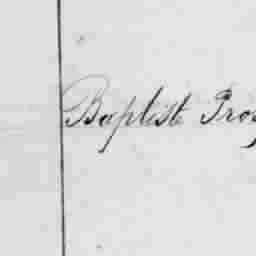 Baptist Prop